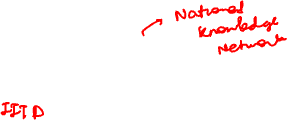 National
Knowledge
Network
IIT D